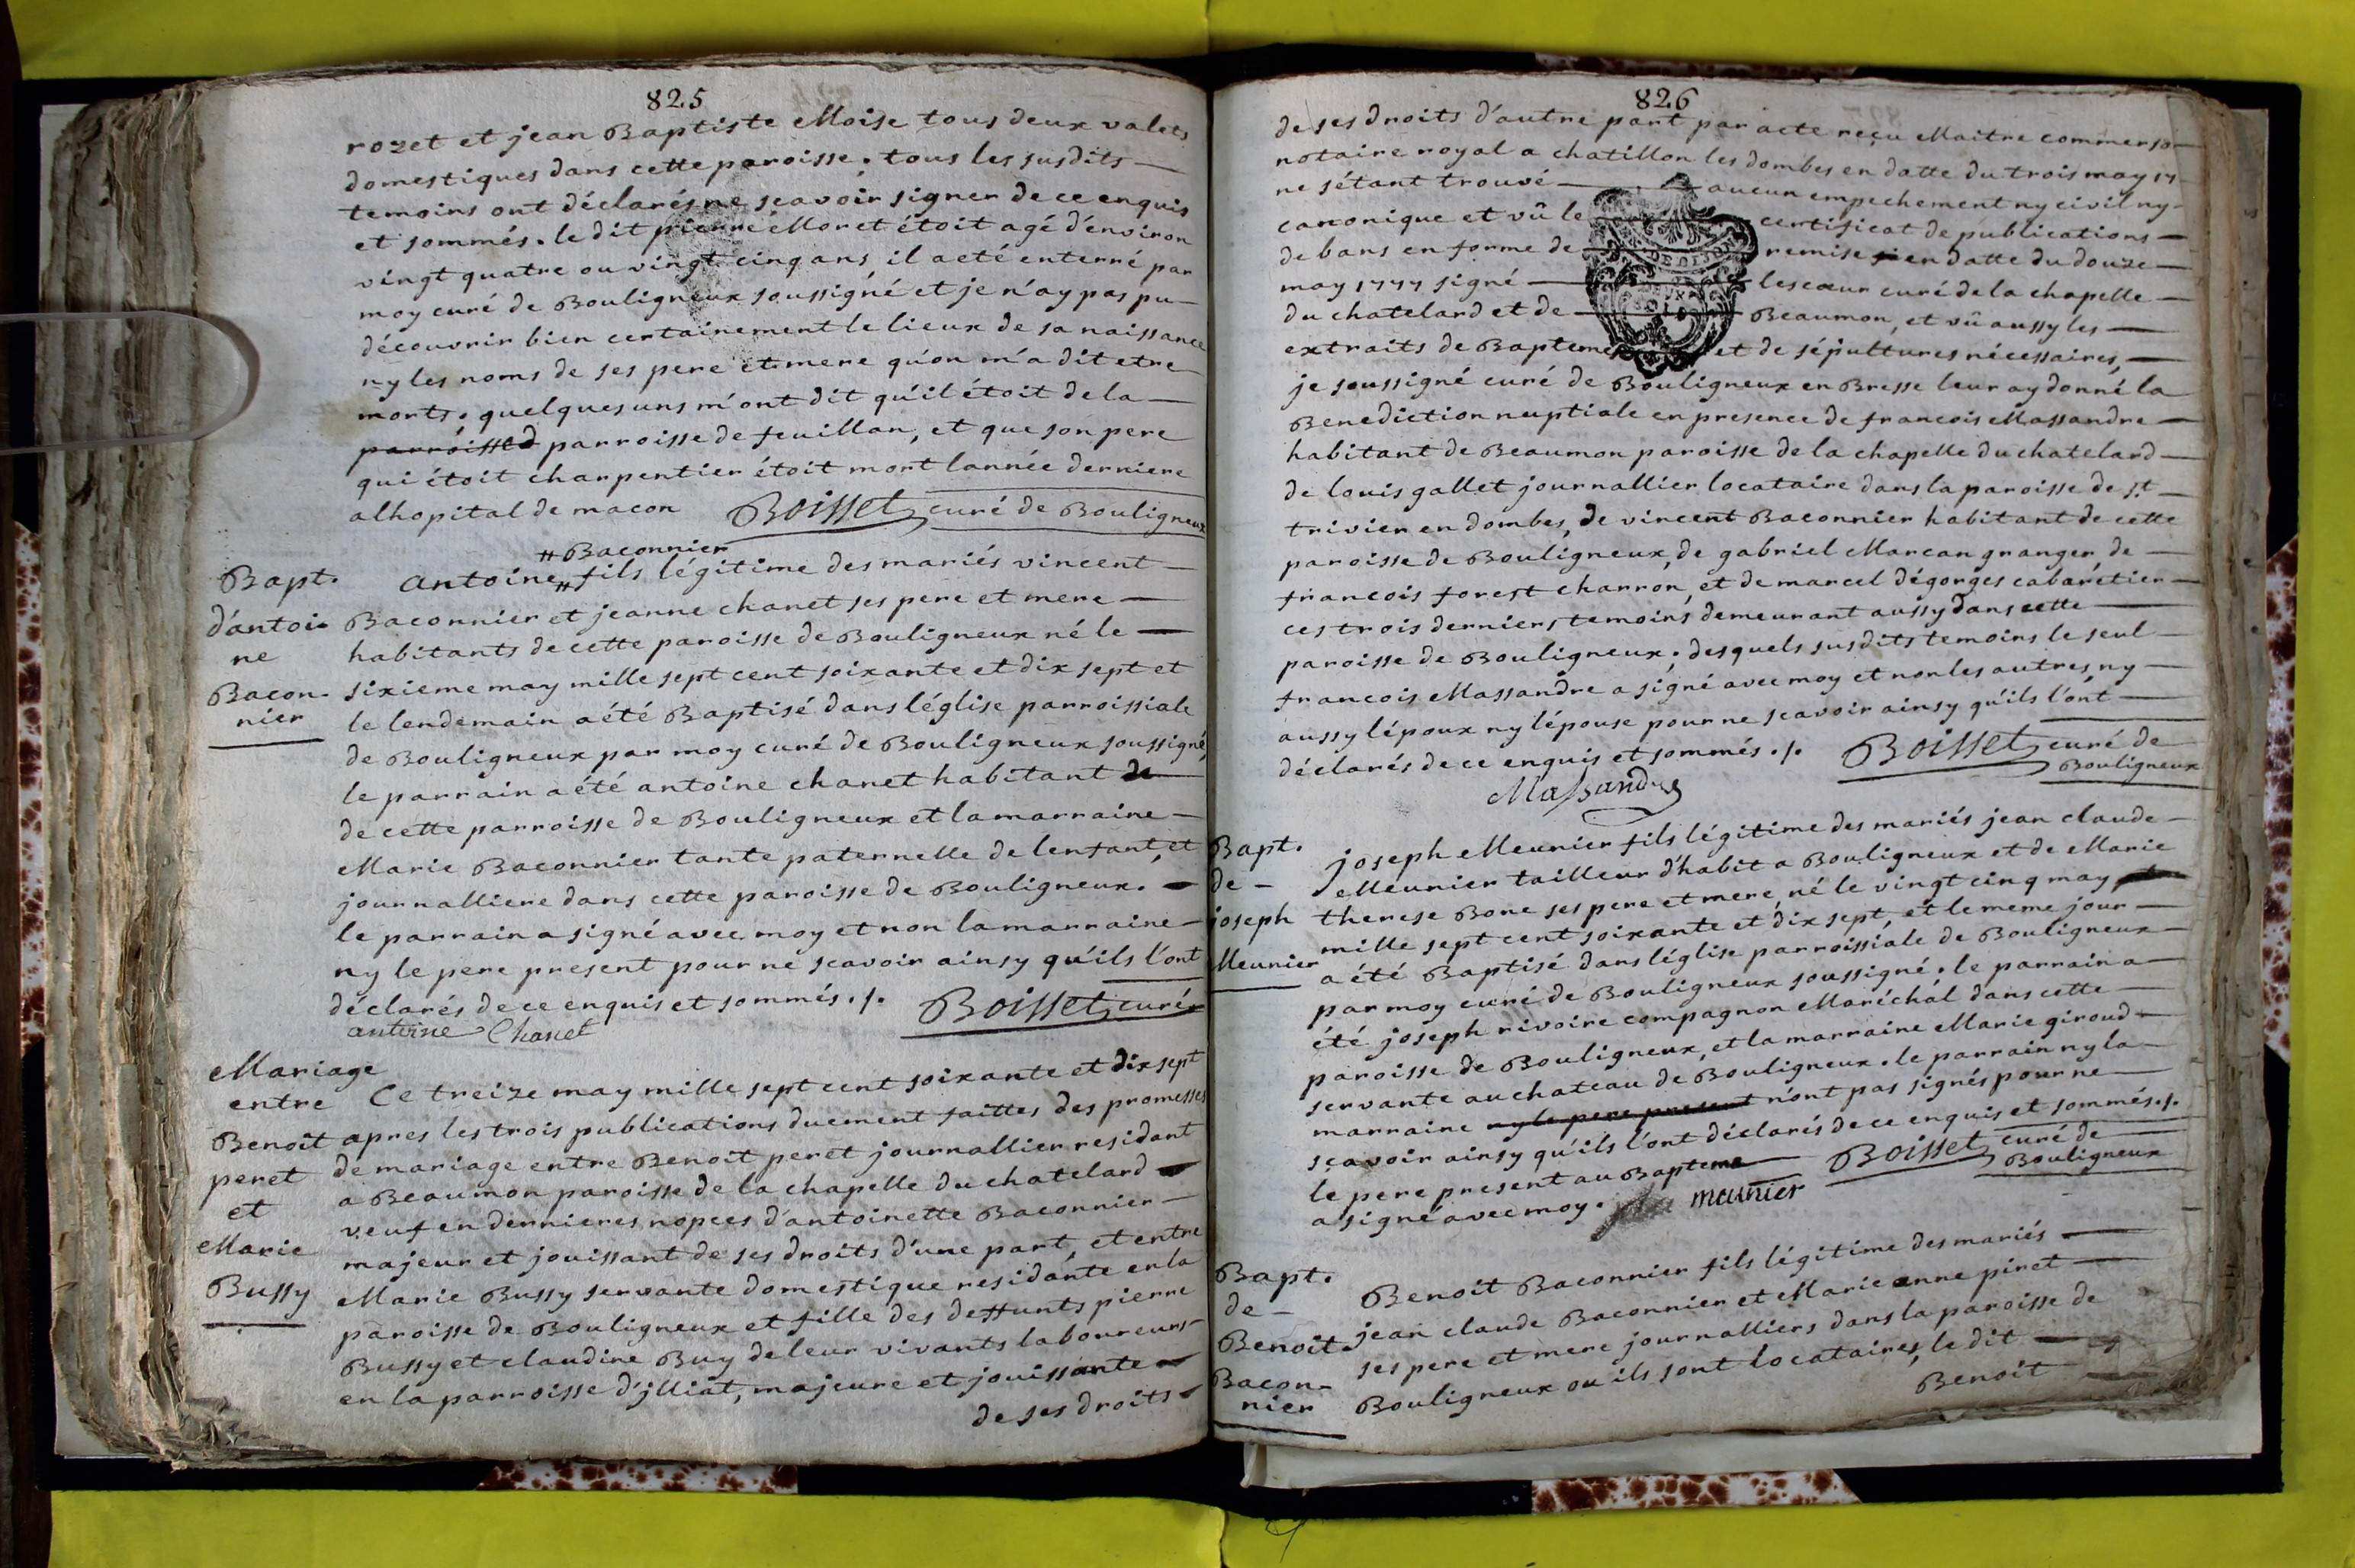 825
rozet et jean Baptiste Moise tous deux valets
domestiques dans cette paroisse. tous les susdits
temoins ont déclarés ne scavoir signer de ce enquis
et sommés. le dit pierre Moret étoit agé d'environ
vingt quatre ou vingt cinq ans, il a eté enterré par
moy curé de Bouligneux soussigné et je n'ay pas pu
découvrir bien certainement le lieux de sa naissance
ny les noms de ses pere et mere qu'on m'a dit etre
morts. quelques uns m'ont dit qu'il étoit de la
parroisse d parroisse de feuillan, et que son pere
qui étoit charpentier étoit mort lannée derniere
alhopital de macon Boisset curé de Bouligneux
# Baconnier
Bapt. d'antoine Baconnier
antoine # fils légitime des mariés vincent
Baconnier et jeanne chanet ses pere et mere
habitants de cette paroisse de Bouligneux né le
sixieme may mille sept cent soixante et dix sept et
le lendemain a été Baptisé dans léglise parroissiale
de Bouligneux par moy curé de Bouligneux soussigné,
le parrain a été antoine chanet habitant de
de cette parroisse de Bouligneux et la marraine
Marie Baconnier tante paternelle de lenfant, et
journalliere dans cette paroisse de Bouligneux.
le parrain a signé avec moy et non la marraine
ny le pere present pour ne scavoir ainsy qu'ils l'ont
déclarés de ce enquis et sommés ./. Boisset curé
antoine Chanet
Mariage entre Benoit peret et Marie Bussy
Ce treize may mille sept cent soixante et dix sept
apres les trois publications duement faittes des promesses
de mariage entre Benoit peret journallier residant
a Beaumon paroisse de la chapelle du chatelard
veuf en dernieres nopces d'antoinette Baconnier
majeur et jouissant de ses droits d'une part, et entre
Marie Bussy servante domestique residante en la
paroisse de Bouligneux et fille des deffunts pierre
Bussy et claudine Buy de leur vivants laboureurs
en la parroisse d'jlliat, majeure et jouissante
de ses droits
826
de ses droits d'autre part par acte reçu Maitre commerso
notaire royal a chatillon les dombes en datte du trois may 17
ne s'étant trouvé aucun empechement ny civil ny
canonique et vû le certificat de publications
de bans en forme de remise en datte du douze
may 1777 signé lescœur curé de la chapelle
du chatelard et de Beaumon, et vû aussy les
extraits de Baptemes et de sépultures nécessaires,
je soussigné curé de Bouligneux en Bresse leur ay donné la
Benediction nuptiale en presence de francois Massandre
habitant de Beaumon paroisse de la chapelle du chatelard
de louis gallet journallier locataire dans la paroisse de st
trivier en dombes, de vincent Baconnier habitant de cette
paroisse de Bouligneux, de gabriel Marcan granger de
francois forest charron, et de marcel dégorges cabarétier
ces trois derniers temoins demeurant aussy dans cette
paroisse de Bouligneux. desquels susdits temoins le seul
francois Massandre a signé avec moy et non les autres, ny
aussy lépoux ny lépouse pour ne scavoir ainsy qu'ils l'ont
déclarés de ce enquis et sommés ./. Boisset curé de
Bouligneux
Massandre
Bapt. de joseph Meunier
joseph Meunier fils légitime des mariés jean claude
Meunier tailleur d'habit a Bouligneux et de Marie
therese Bone ses pere et mere, né le vingt cinq may
mille sept cent soixante et dix sept, et le meme jour
a été Baptisé dans léglise parroissiale de Bouligneux
par moy curé de Bouligneux soussigné. le parrain a
été joseph rivoire compagnon Maréchal dans cette
paroisse de Bouligneux, et la marraine Marie giroud
servante au chateau de Bouligneux. le parrain ny la
marraine ny le pere present n'ont pas signés pour ne
scavoir ainsy qu'ils l'ont déclarés de ce enquis et sommés ./.
le pere present au Bapteme Boisset curé de
Bouligneux
a signé avec moy. meunier
Bapt. de Benoit Baconnier
Benoit Baconnier fils légitime des mariés
jean claude Baconnier et Marie anne piret
ses pere et mere journalliers dans la paroisse de
Bouligneux ou ils sont locataires, le dit
Benoit